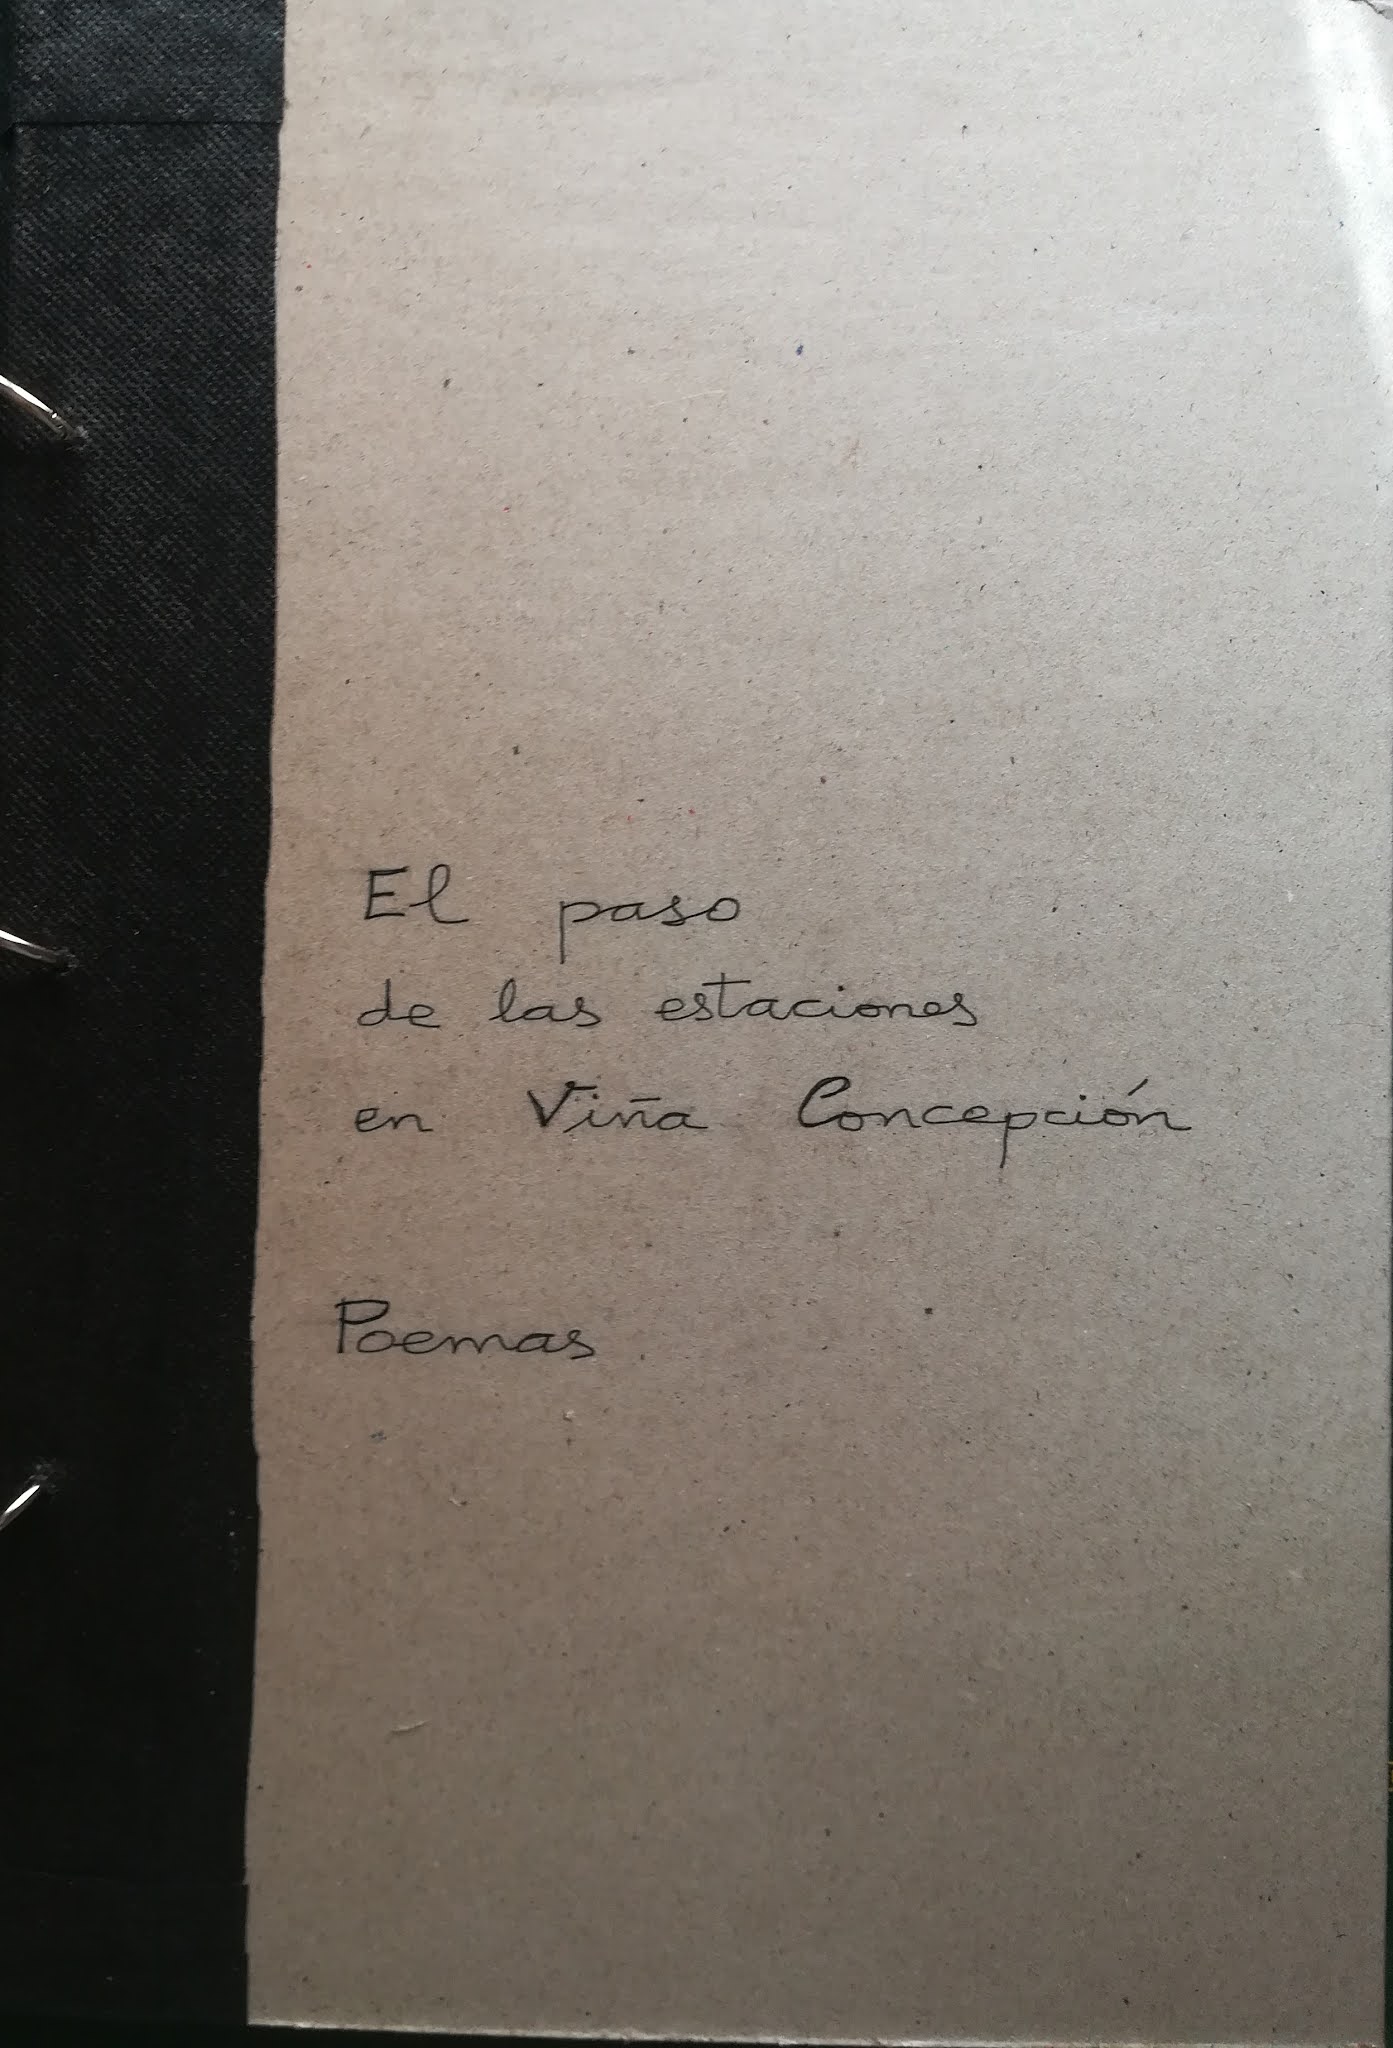 El paso
de las estaciones
en Viña Concepción
Poemas